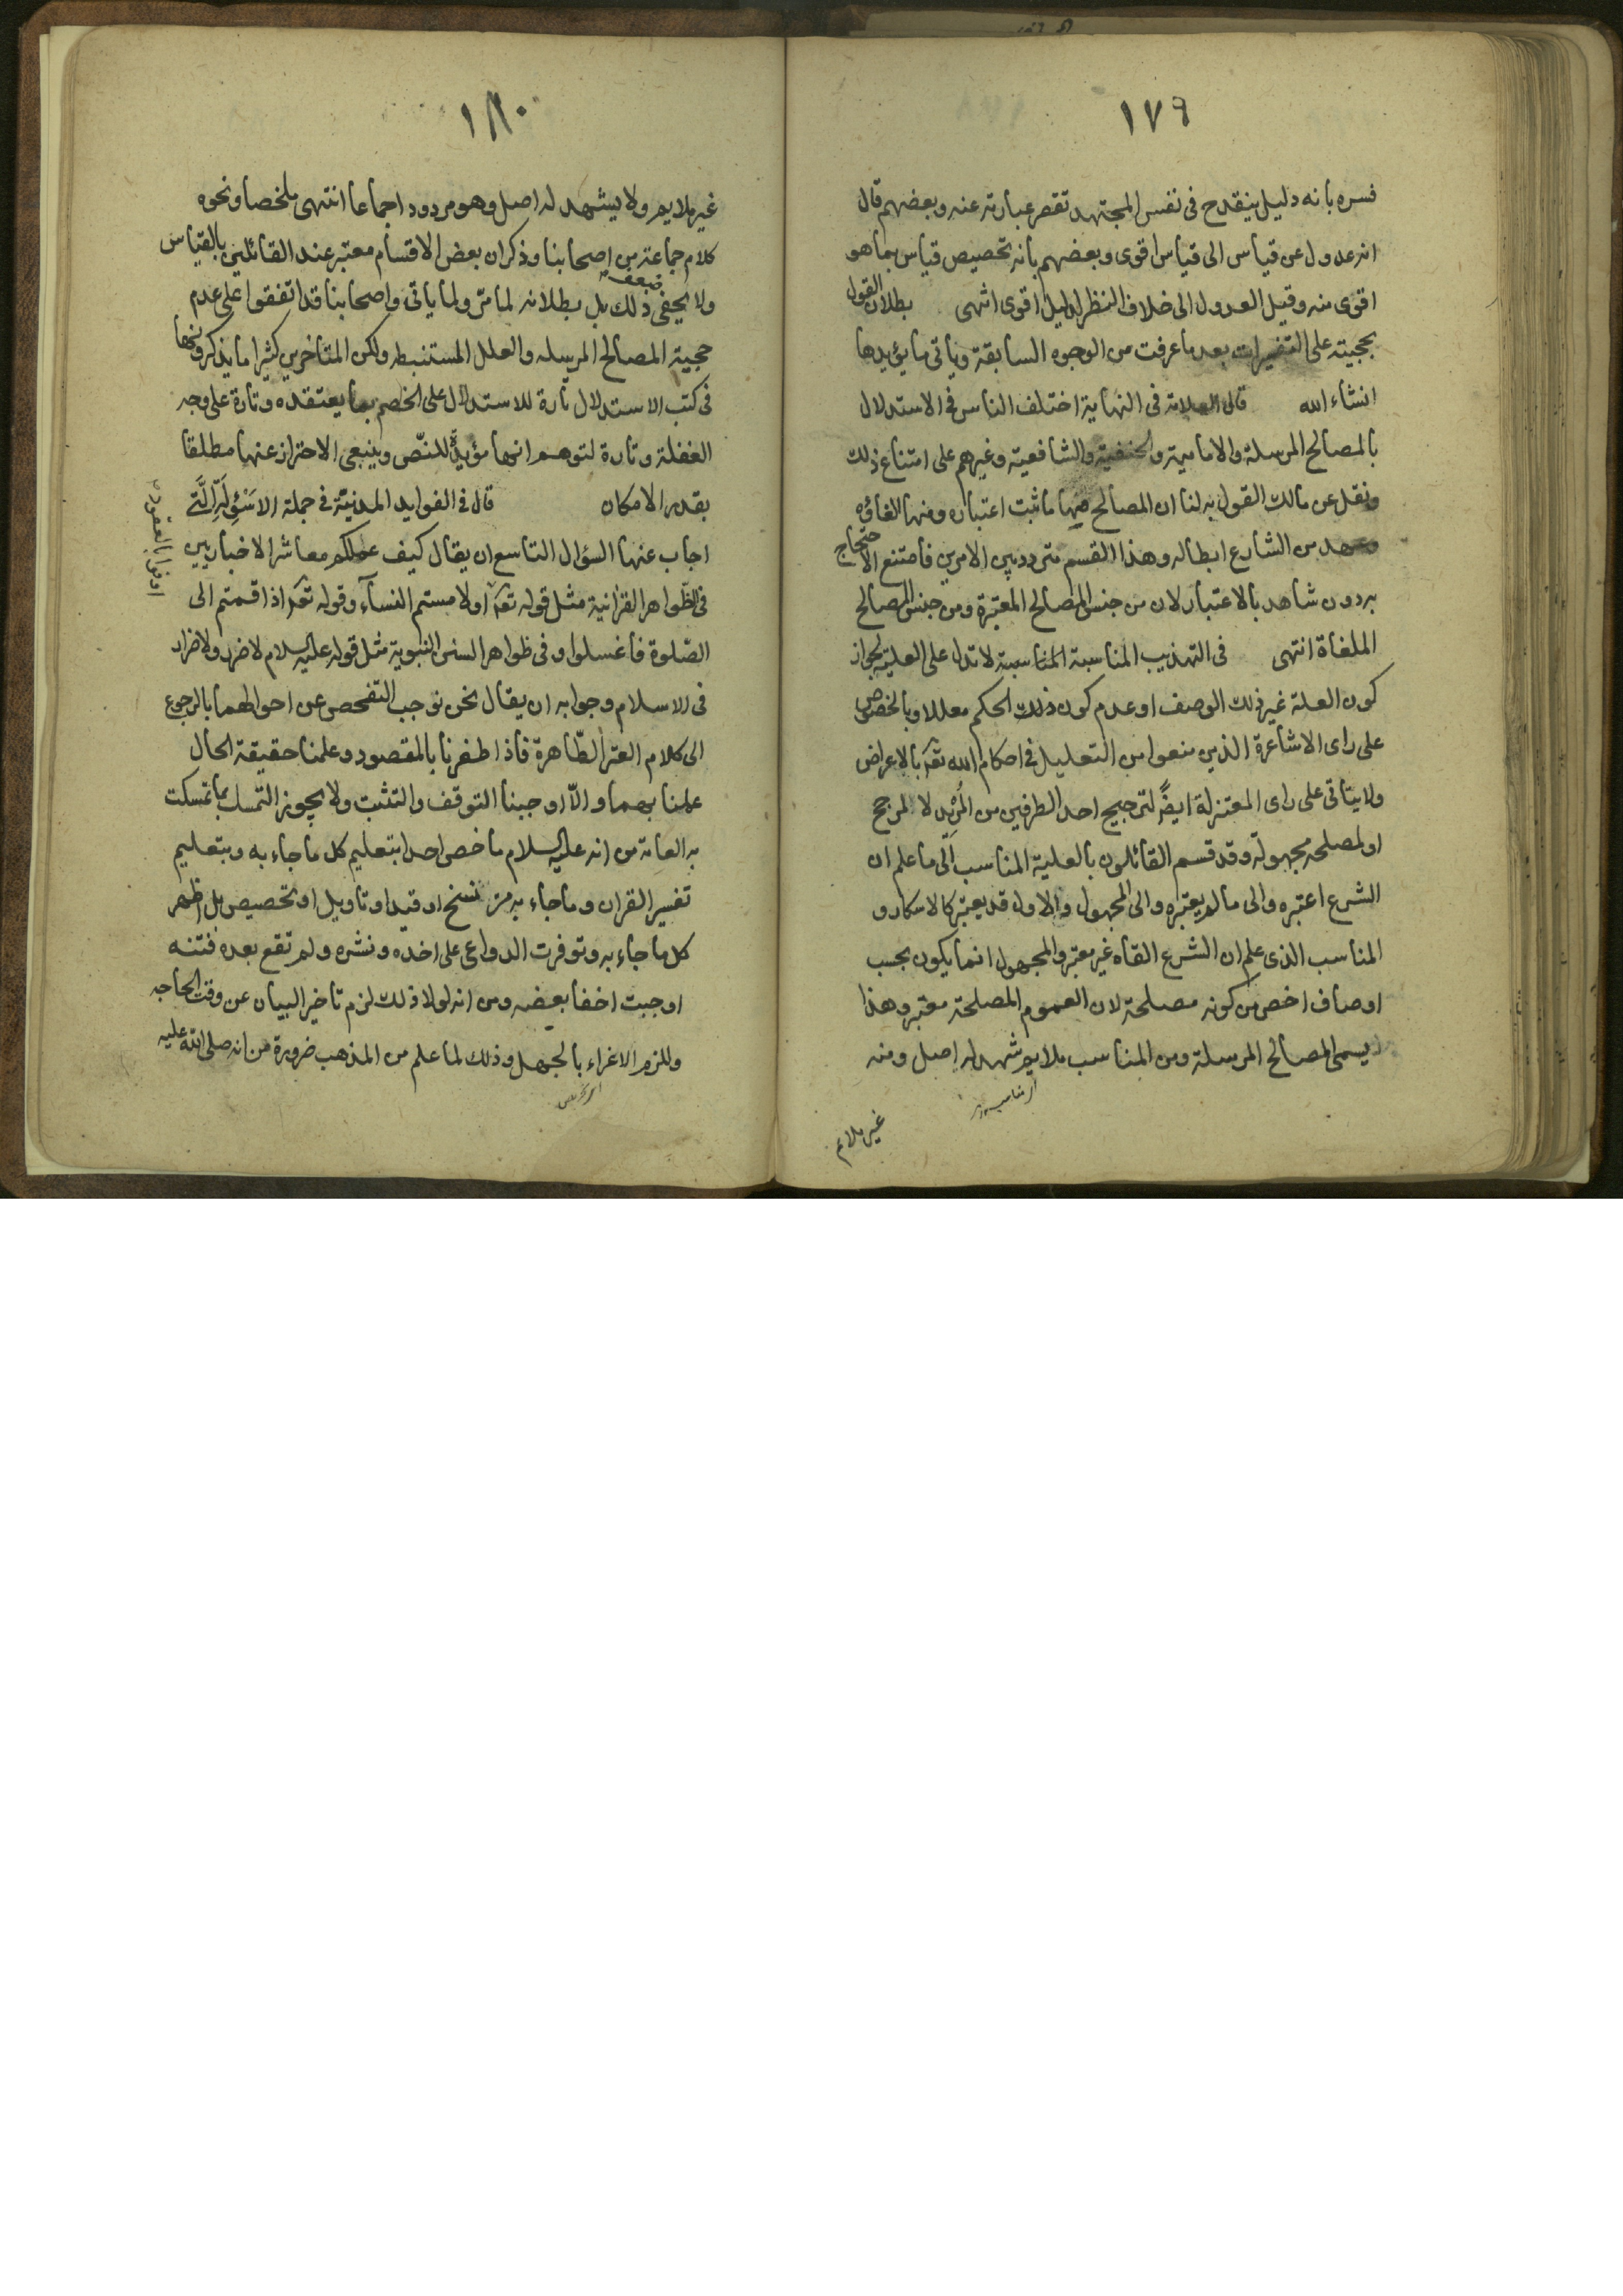 ١٧٩
فسره بانه دليل ينقدح فى نفس المجتهد تقصر عبارته عنه وبعضهم قال
انه عدول عن قياس الى قياس اقوى وبعضهم بانه تخصيص قياس بما هو
اقوى منه وقيل العدول الى خلاف النظر لدليل اقوى انتهى بطلان القول
بحجيته على التفسيرات بعد ما عرفت من الوجوه السابقة وياتى ما يؤيدها
انشاء الله قال العلامة فى النهاية اختلف الناس فى الاستدلال
بالمصالح المرسلة والامامية والحنفية والشافعية وغيرهم على امتناع ذلك
ونقل عن مالك القول به لنا ان المصالح منها ما ثبت اعتباره ومنها الغاؤه
وعهد من الشارع ابطاله وهذا القسم متردد بين الامرين فامتنع الاحتجاج
به دون شاهد بالاعتبار لان من جنس المصالح المعتبرة ومن جنس المصالح
الملغاة انتهى فى التهذيب المناسبة المناسبة لا تدل على العلية لجواز
كون العلة غير ذلك الوصف او عدم كون ذلك الحكم معللا وبالخصوص
على راى الاشاعرة الذين منعوا من التعليل فى احكام الله تعه بالاعراض
ولا يتاتى على راى المعتزلة ايضً لترجيح احد الطرفين من لا لمرجح
او لمصلحة مجهولة وقد قسم القائلون بالعلية المناسب الى ما علم ان
الشرع اعتبره والى ما لم يعتبره والى المجهول والاول قد يعتبر كالاسكار و
المناسب الذى علم ان الشرع القاه غير معتبر والمجهول انما يكون بحسب
اوصاف اخص من كونه مصلحة لان العموم المصلحة معتبر وهذا
يسمى المصالح المرسلة ومن المناسب ملايم شهد له اصل ومنه
غير ملائم
١٨٠
غير ملايم ولا يشهد له اصل وهو مردود اجماعا انتهى ملخصا ونحوه
كلام جماعة من اصحابنا وذكر ان بعض الاقسام معتبر عند القائلين بالقياس
ولا يخفى ضعف ذلك بل بطلانه لما مرّ ولما ياتى واصحابنا قد اتفقوا على عدم
حجية المصالح المرسله والعلل المستنبطه ولكن المتاخرين كثيرا ما يذكرونها
فى كتب الاستدلال تارة للاستدلال على الخصم بما يعتقده وتارة على وجه
الغفلة وتارة لتوهم انها مؤيدة للنصّ وينبغى الاحتراز عنها مطلقا
بقدر الامكان قال فى الفوايد المدنيّة فى جملة الاسئولة الّتى
اجاب عنها السؤال التاسع ان يقال كيف عملكم معاشر الاخباريين
فى الظّواهر القرانية مثل قوله تعه اوفوا بالعقود او لامستم النسآء وقوله تعه اذا قمتم الى
الصّلوة فاغسلوا وفى ظواهر السنن النبوية مثل قوله عليه السلام لا ضرر ولا ضرار
فى الاسلام وجوابه ان يقال نحن نوجب التفحص عن احوالهما بالرجوع
الى كلام العترة الطّاهرة فاذا ظفرنا بالمقصود وعلمنا حقيقة الحال
علمنا بهما والّا اوجبنا التوقف والتثبت ولا يجوز التمسك بما تمسكت
به العامة من انه عليه السلام ما خص احدا بتعليم كل ما جاء به وبتعليم
تفسير القران وما جاء به من نسخ او قيد او تاويل او تخصيص بل اظهر
كل ما جاء به وتوفرت الدواعى على اخده ونشره ولم تقع بعده فتنه
اوجبت اخفا بعضه ومن انه لولا ذلك لزم تاخير البيان عن وقت الحاجه
وللزم الاغراء بالجهل وذلك لما علم من المذهب ضرورة من انه صلى الله عليه